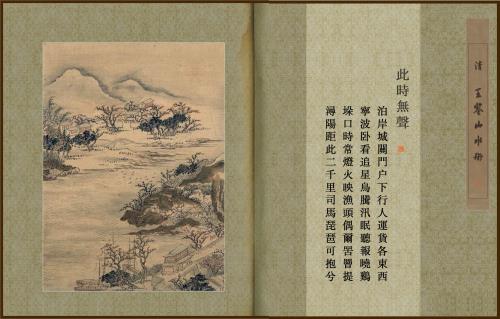 清 王 山水
此時無聲
泊岸城關門户下行人運貨各東西
寧波卧看追星鳥騰汛眠聽報曉鷄
垛口時常燈火映漁頭偶爾罟罾提
潯陽距此二千里司馬琵琶可抱兮